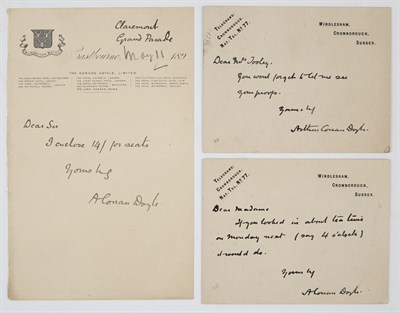 Claremont
Grand Parade
Eastbourne, May 11 189
THE GORDON HOTELS, LIMITED.
Dear Sir
I enclose 14/ for seats
Yours truly
A Conan Doyle
TELEGRAMS:
CROWBOROUGH.
NAT. TEL. Nº 77.
WINDLESHAM,
CROWBOROUGH,
SUSSEX.
Dear Mrs Tooley.
You wont forget to let me see
your proofs.
Yours truly
Arthur Conan Doyle.
TELEGRAMS:
CROWBOROUGH.
NAT. TEL. Nº 77.
WINDLESHAM,
CROWBOROUGH,
SUSSEX.
Dear Madame
If you looked in about tea time
on Monday next (say 4 o'clock)
it would do.
Yours truly
A Conan Doyle.